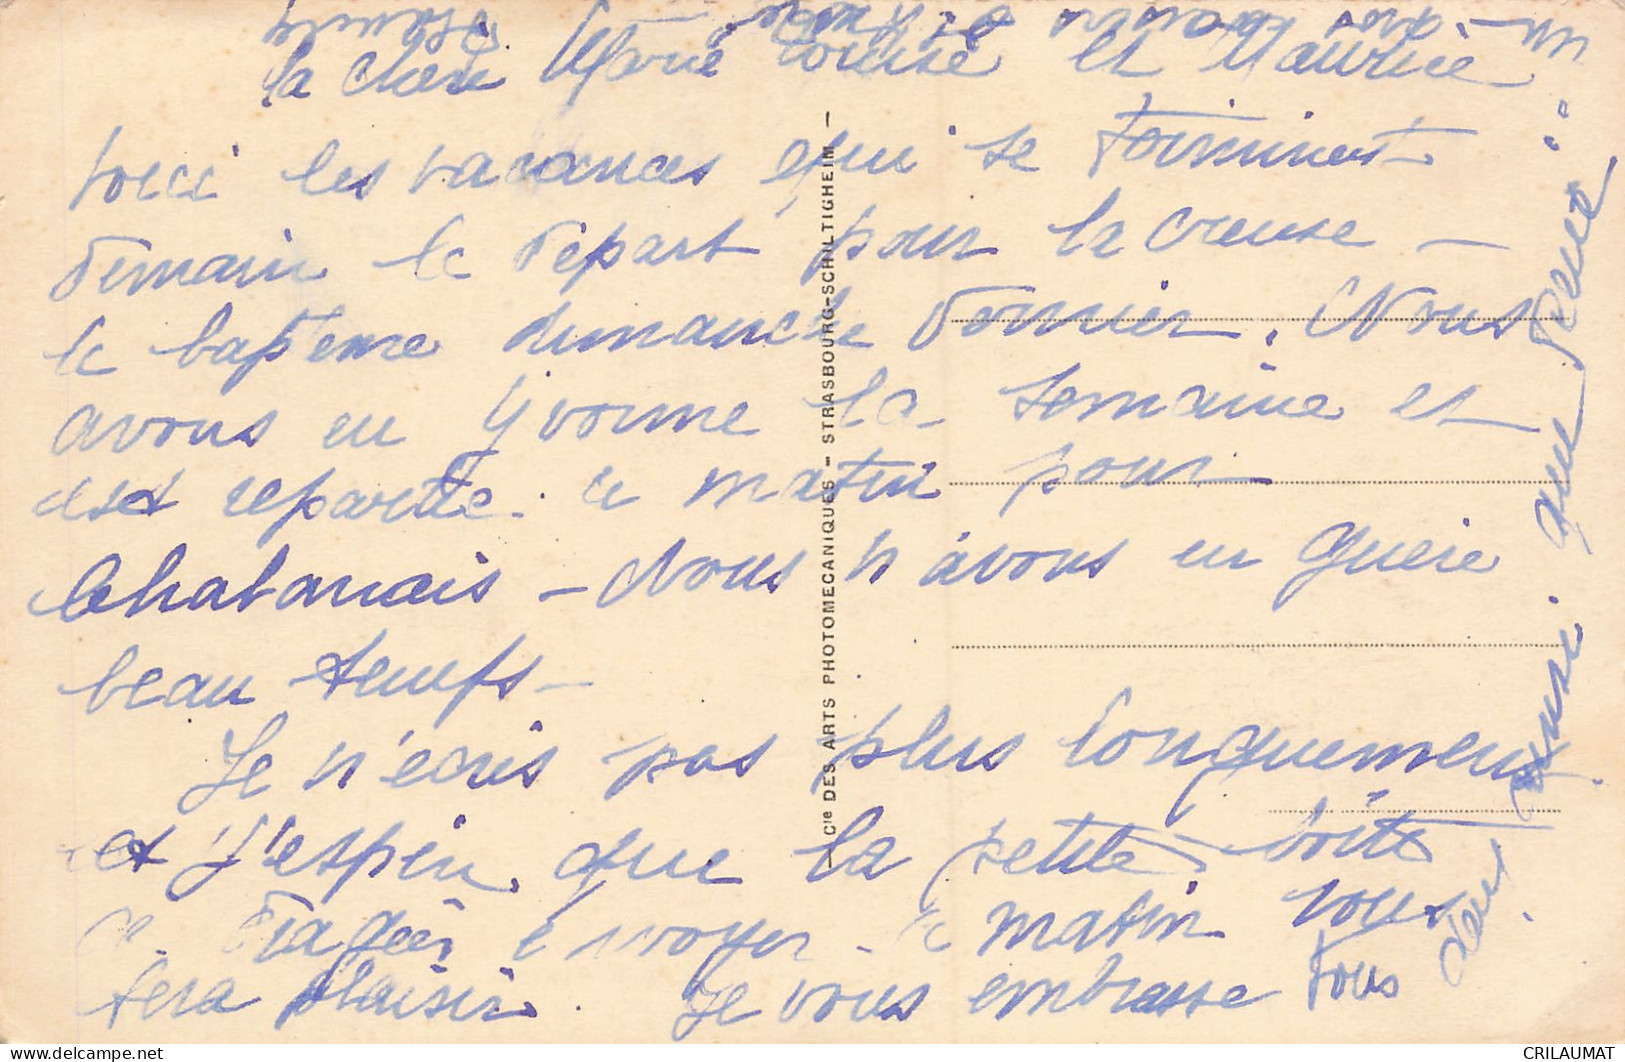 la chère Marie Louise et Maurice
voici les vacances qui se terminent
demain le départ pour la creuse —
le bapteme dimanche dernier. Nous
avons eu Yvonne la semaine et
est repartie ce matin pour
Chabanais — Nous n'avons eu guère
beau temps —
Je n'ecris pas plus longuement
et j'espère que la petite boite
de dragées envoyer ce matin vous
fera plaisir. Je vous embrasse tous
deux ainsi que
Cie DES ARTS PHOTOMECANIQUES - STRASBOURG-SCHILTIGHEIM -
CRILAUMAT